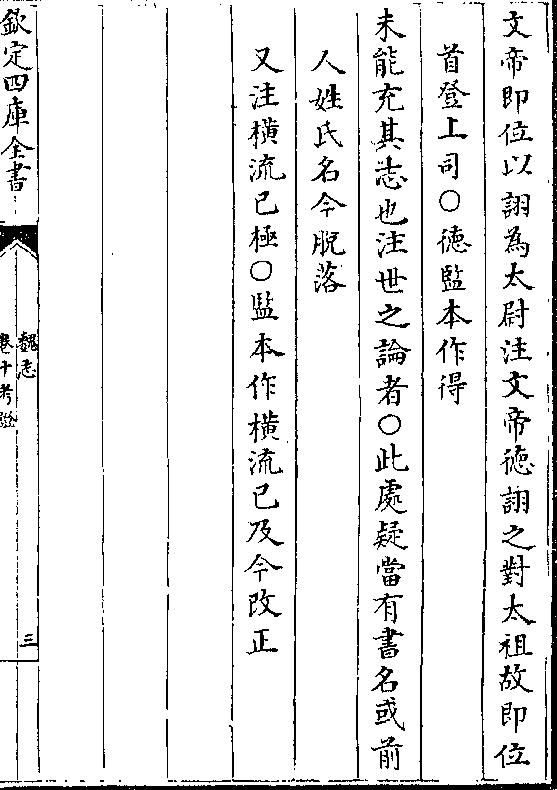 文帝即位以詡為太尉注文帝徳詡之對太祖故即位
首登上司〇徳監本作得
未能充其志也注世之論者〇此處疑當有書名或前
人姓氏名今脫落
又注橫流已極〇監本作橫流已及今改正
欽定四庫全書
魏志
卷十考證
三